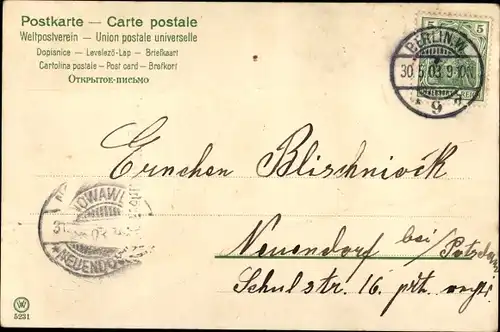 Postkarte — Carte postale
Weltpostverein — Union postale universelle
Dopisnice — Levelező-Lap — Briefkaart
Cartolina postale — Post card — Brefkort
Открытое-письмо
5 5
BERLIN, W.
30.5.03. 9
* 9
Ernchen Blischniock
NOWAWES
31
03
* NEUENDORF
Neuendorf bei/Potsdam
Schulstr. 16 ptr.
W
5231